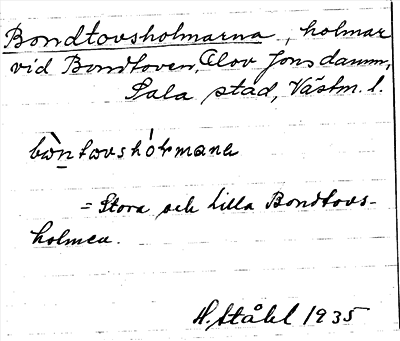 Bondtovsholmarna, holmar
vid Bondtoven, Olov Jons damm,
Sala stad, Västm. l.
bòntovshólmana
= Stora och Lilla Bondtovs-
holmen.
H. Ståhl 1935